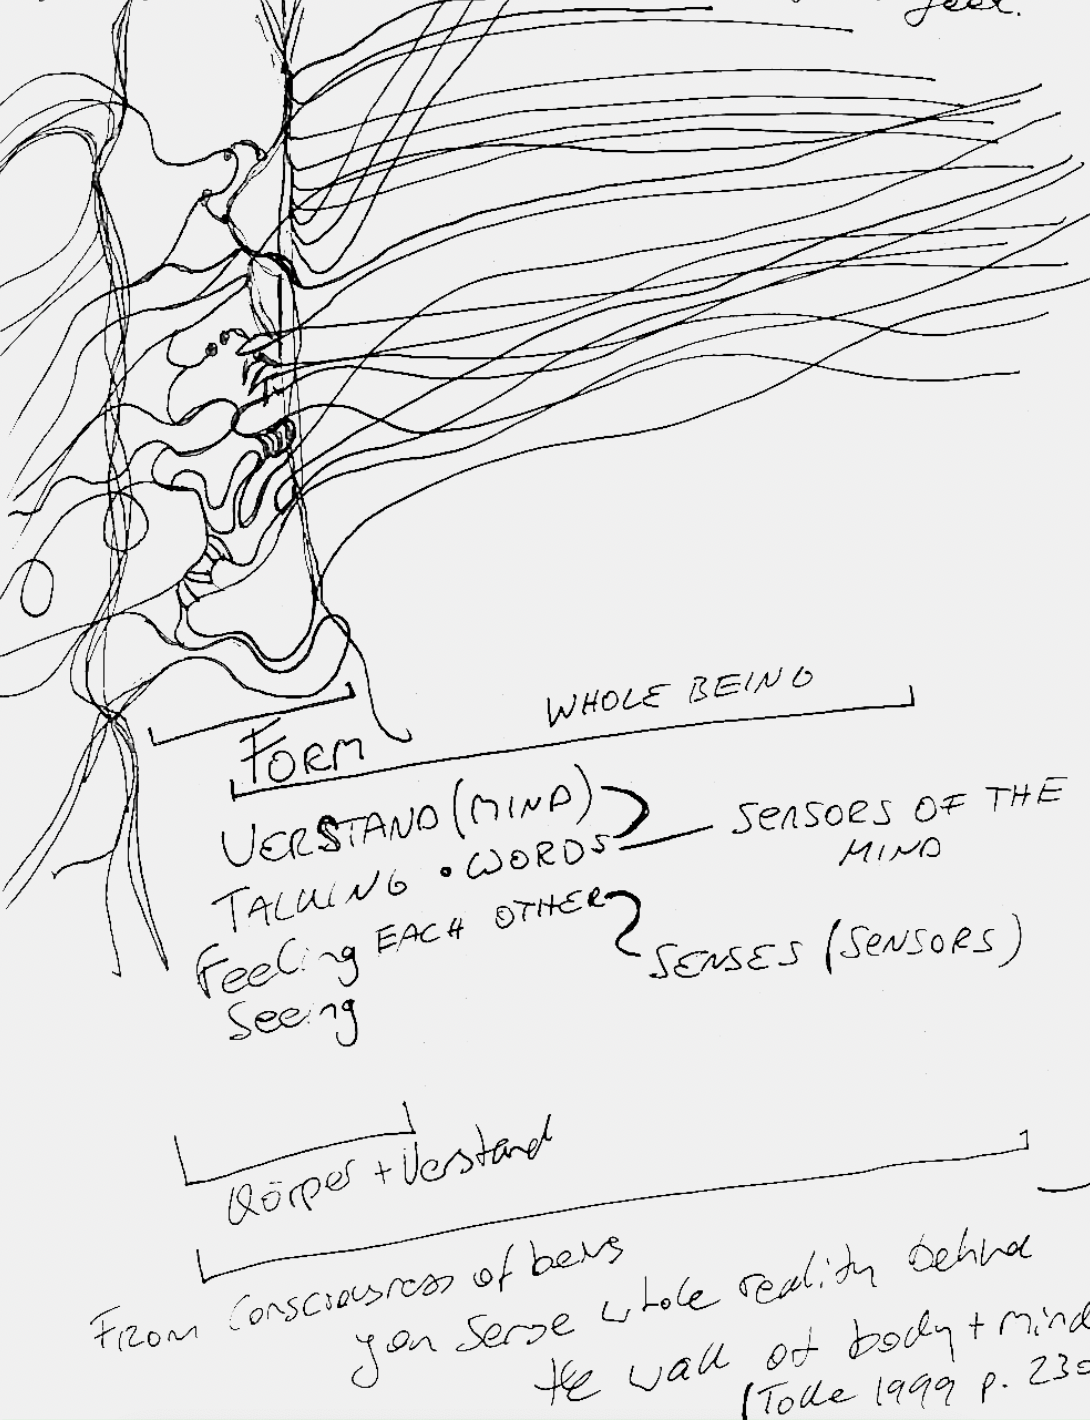 feel.
WHOLE BEING
FORM
VERSTAND (MIND)
TALKING • WORDS
SENSORS OF THE
MIND
Feeling EACH OTHER
SENSES (SENSORS)
Seeing
Körper + Verstand
FROM Consciousness of being
you sense whole reality behind
the wall of body + mind
(Tolle 1999 p. 230